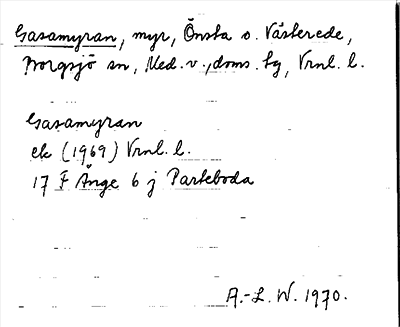 Gasamyran, myr, Önsta o. Västerede,
Borgsjö sn, Med. v., doms. tg, Vrnl. l.
Gasamyran
ek (1969) Vrnl. l.
17 F Ånge 6 j Parteboda
A.-L. W. 1970.